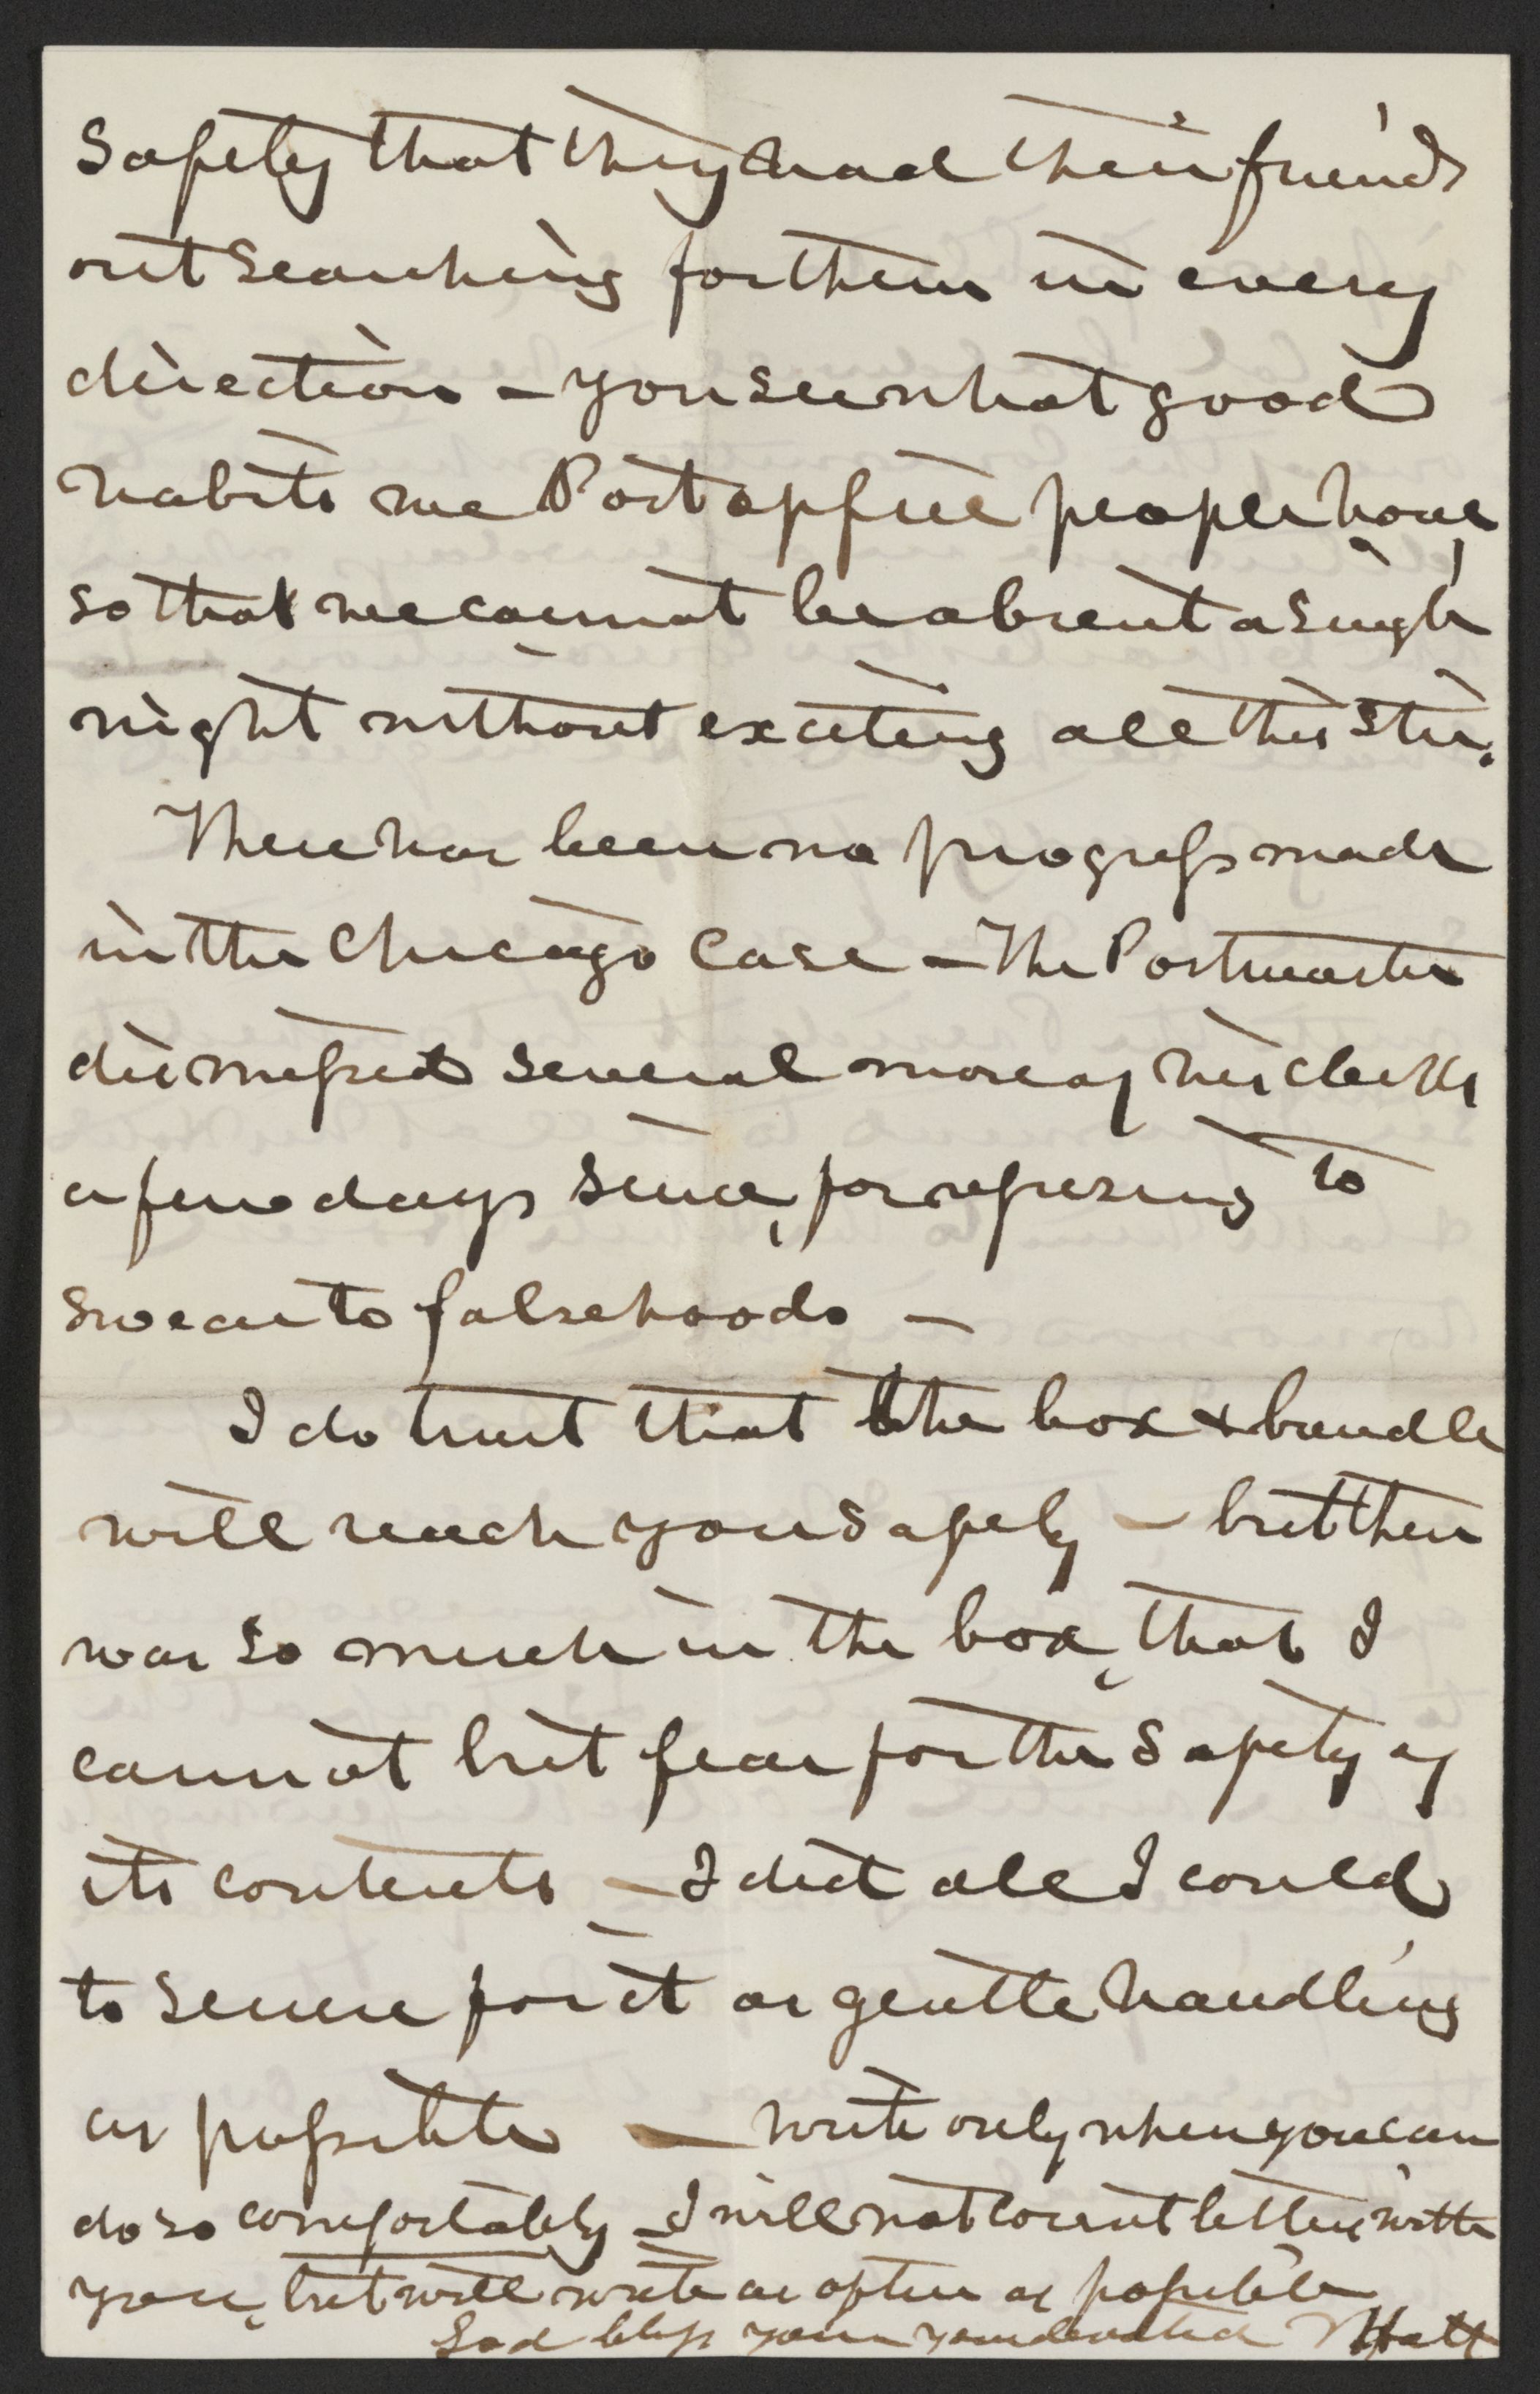 Safety that they had their friends
out searching for them in every
direction - You see what good
habits we Postoffice people have,
so that we cannot be absent a single
night without exciting all this stir.
There has been no progress made
in the Chicago case - The Postmaster
dismissed several more of his clerks
a few days since, for refusing to
swear to falsehoods -
I do trust that the box & bundle
will reach you safely - but there
was so much in the box, that I
cannot but fear for the safety of
its contents - I did all I could
to secure for it as gentle handling
as possible - Write only when you can
do so comfortably - I will not count letters with
you, but will write as often as possible
God bless you your devoted Matt